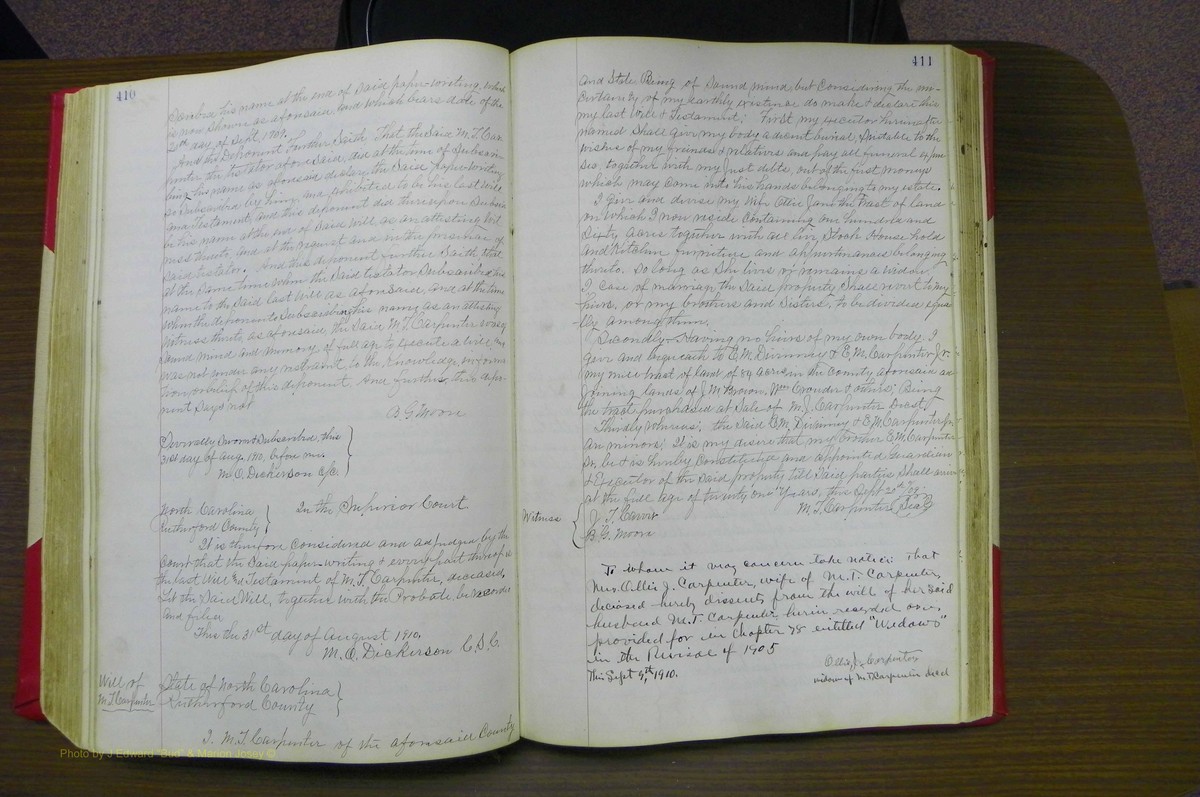 410
scribe his name at the end of said paper-writing, which
is now shown as aforesaid and which bears date of the
20th day of Sept. 1909.
And the Deponent Further Saith, That the said M. T. Car-
penter the testator aforesaid, did at the time of subscri-
bing his name as aforesaid declare the said paper-writing
so subscribed by him, and exhibited to be his last will
and Testament and this deponent did thereupon subscribe
his name at the end of said will as an attesting wit-
ness thereto, and at the request and in the presence of
said testator. And this deponent further saith, that
at the same time when the said testator subscribed his
name to the said last will as aforesaid, and at the time
when the deponent subscribed his name as an attesting
witness thereto, as aforesaid, the said M. T. Carpenter was of
sound mind and memory, of full age to execute a will, and
was not under any restraint, to the knowledge, informa-
tion, or belief of this deponent. And further, this depo-
nent says not
B. G. Moore
Severally Sworn & Subscribed, this
31st day of Aug. 1910, before me.
M. O. Dickerson C.S.C.
North Carolina
Rutherford County
In the Superior Court
It is therefore considered and adjudged by the
Court that the said paper-writing & every part thereof is
the last Will & Testament of M. T. Carpenter, deceased.
Let the said Will, together with the Probate, be recorded
and filed.
This the 31st day of August 1910.
M. O. Dickerson C.S.C.
Will of
M. T. Carpenter
State of North Carolina
Rutherford County
I, M. T. Carpenter of the aforesaid County
Photo by J Edward "Bud" & Marion Josey ©
411
and State Being of Sound mind but Considering the un-
certainty of my earthly existence do make & declare this
my last Will & Testament: First my executor hereinafter
named Shall give my body a decent burial, Suitable to the
wishes of my freinds & relatives and pay all funeral expen-
ses, together with my Just debts, out of the first moneys
which may Come into his hands belonging to my estate.
I give and devise my Wife Ollie Jane the Tract of land
on which I now reside Containing one hundred and
Sixty Acres together with all live Stock House hold
and Kitchen furniture and appurtenances belonging
thereto. So long as She lives or remains a widow.
I, case of marriage the said property Shall revert to my
heirs, or my brothers and Sisters, to be divided equal-
ly among them.
Secondly - Having no heirs of my own body. I
give and bequeath to
my
tract of land of 89 acres in the County aforesaid ad-
joining lands of J. M. Brown, Wm Crowder & others; Being
the tract purchased at Sale of M. J. Carpenter
Thirdly Whereas; the said
are minors; It is my desire that my brother E. M. Carpenter
Sr. be & is hereby Constituted and appointed Guardian
& Executor of the said property till said parties Shall arrive
at the full age of twenty one Years, this Sept 20th /09.
M. T. Carpenter Seal
Witness
J. T.
B. G. Moore
To whom it may concern take notice: That
Mrs. Ollie J. Carpenter, wife of M. T. Carpenter,
deceased hereby dissents from the will of her said
husband M. T. Carpenter herein recorded as
provided for in Chapter 78 entitled "Widows"
in the Revisal of 1905
This Sept 9th, 1910.
Ollie J. Carpenter
widow of M. T. Carpenter decd